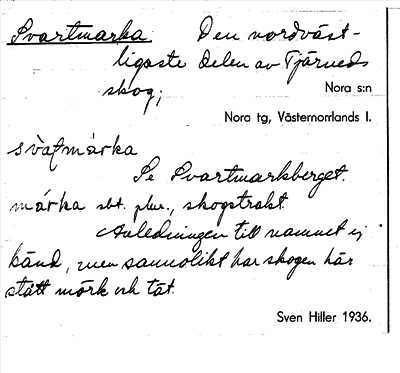 Svartmarka Den nordväst-
ligaste delen av Tjärneds
skog; Nora s:n
Nora tg, Västernorrlands l.
svàt̩márka
Se Svartmarkberget.
márka sbt. plur., skogstrakt.
Anledningen till namnet ej
känd, men sannolikt har skogen här
stått mörk och tät.
Sven Hiller 1936.